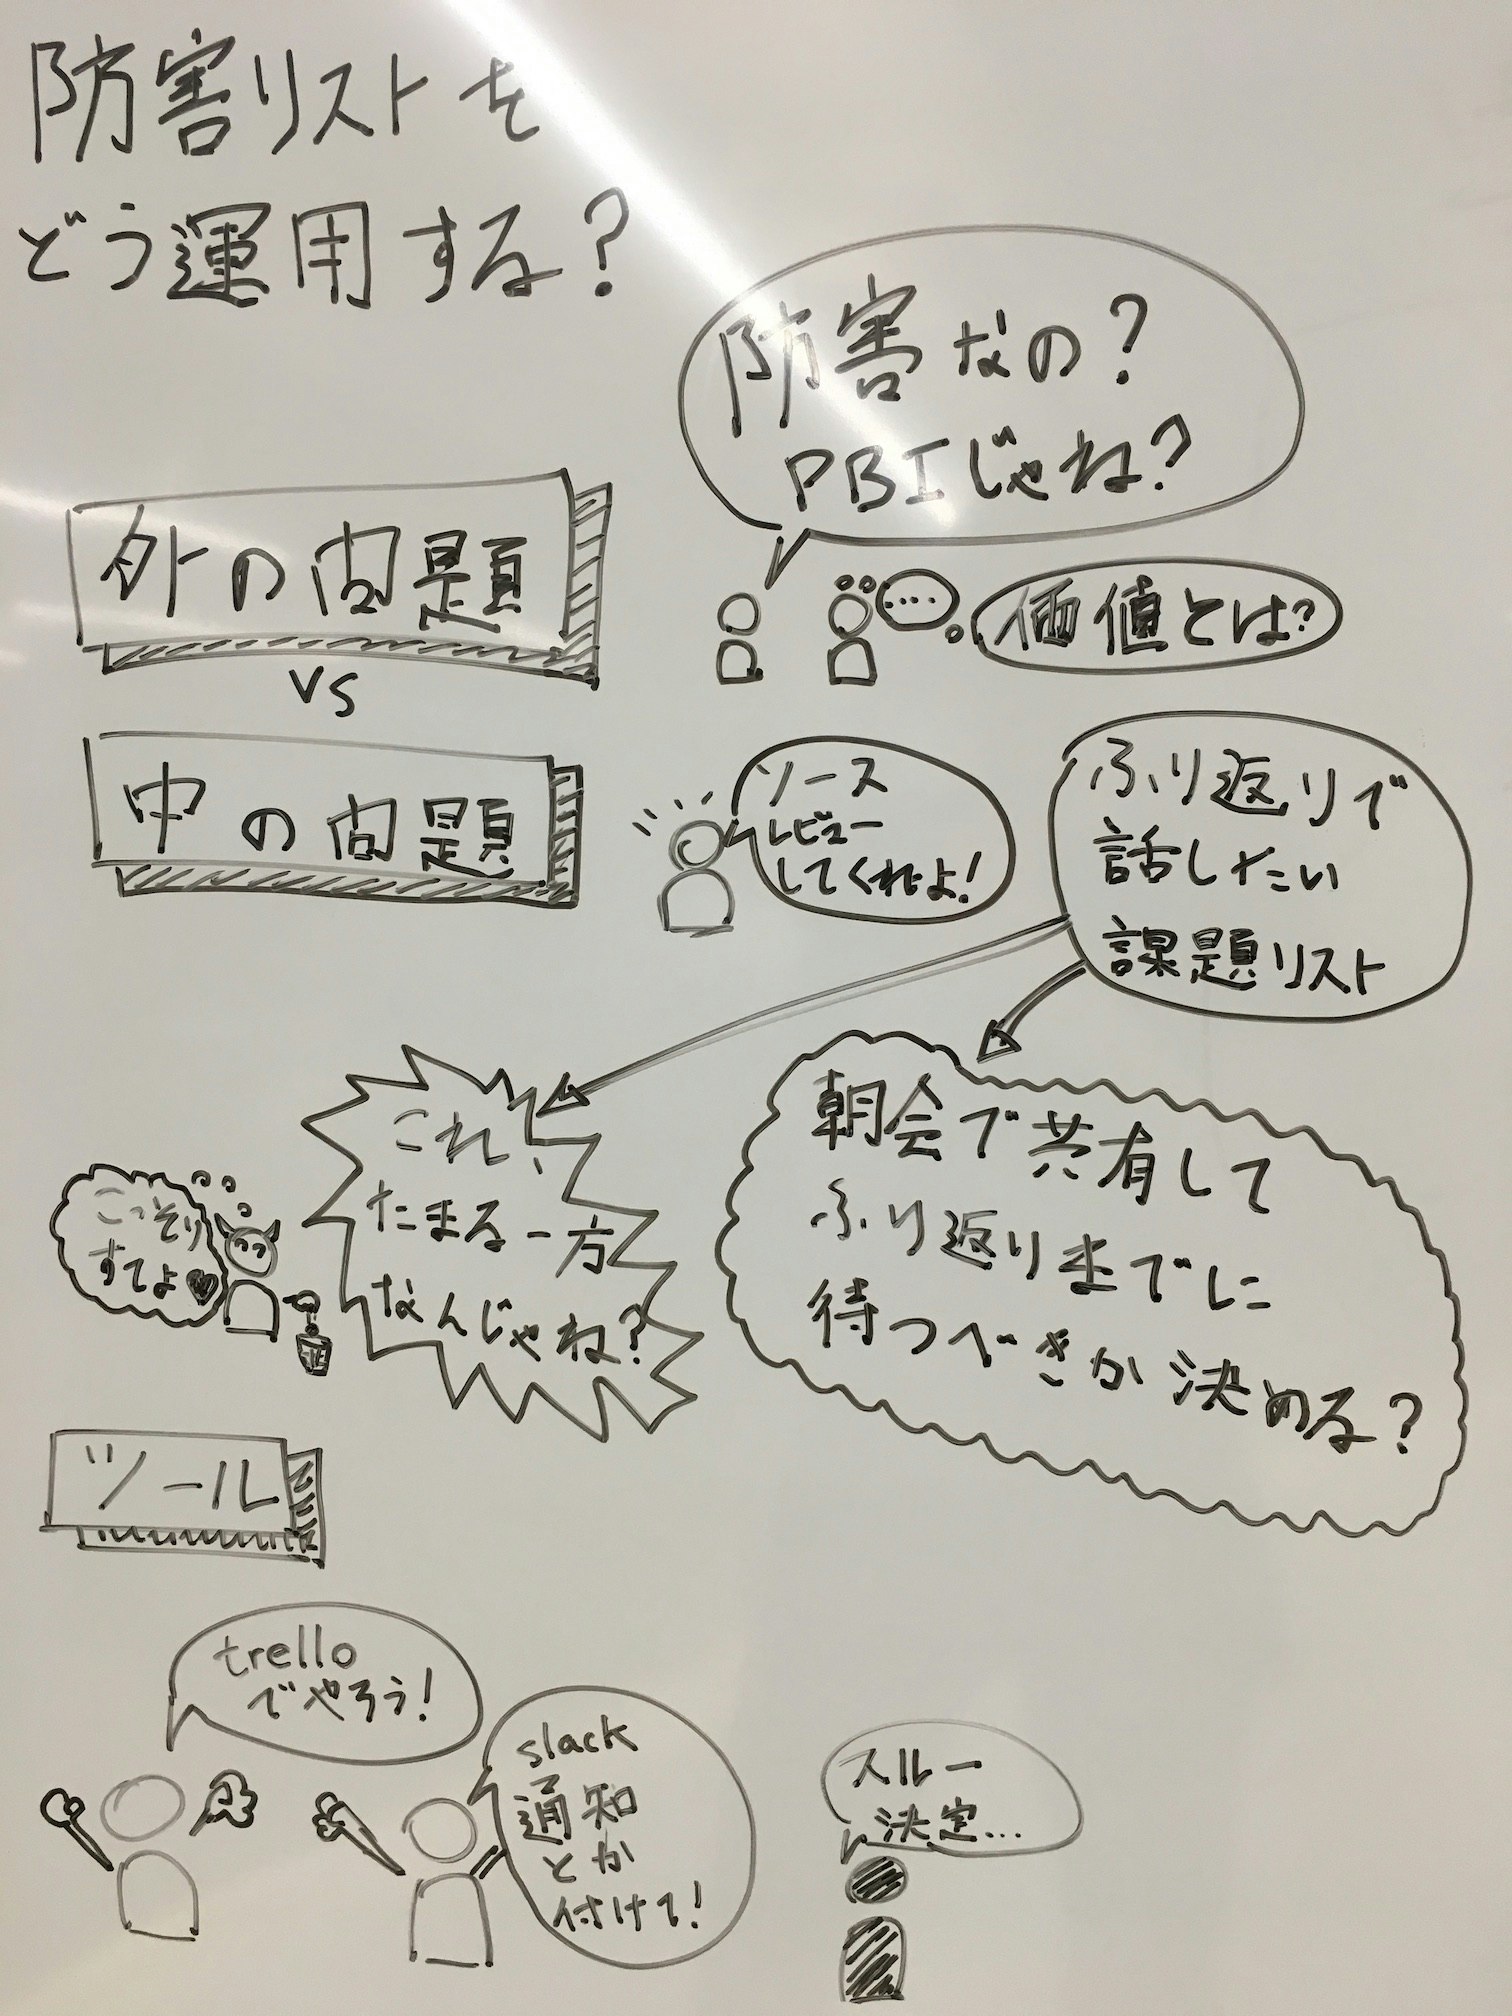 防害リストを
どう運用する?
防害なの?
PBIじゃね?
外の問題
vs
中の問題
....
価値とは?
ソース
レビュー
してくれよ!
ふり返りで
話したい
課題リスト
これ、
たまる一方
なんじゃね?
朝会で共有して
ふり返りまでに
待つべきか決める?
こっそり
すてよ♥
ツール
trello
でやろう!
slack
通知
とか
付けて!
スルー
決定...